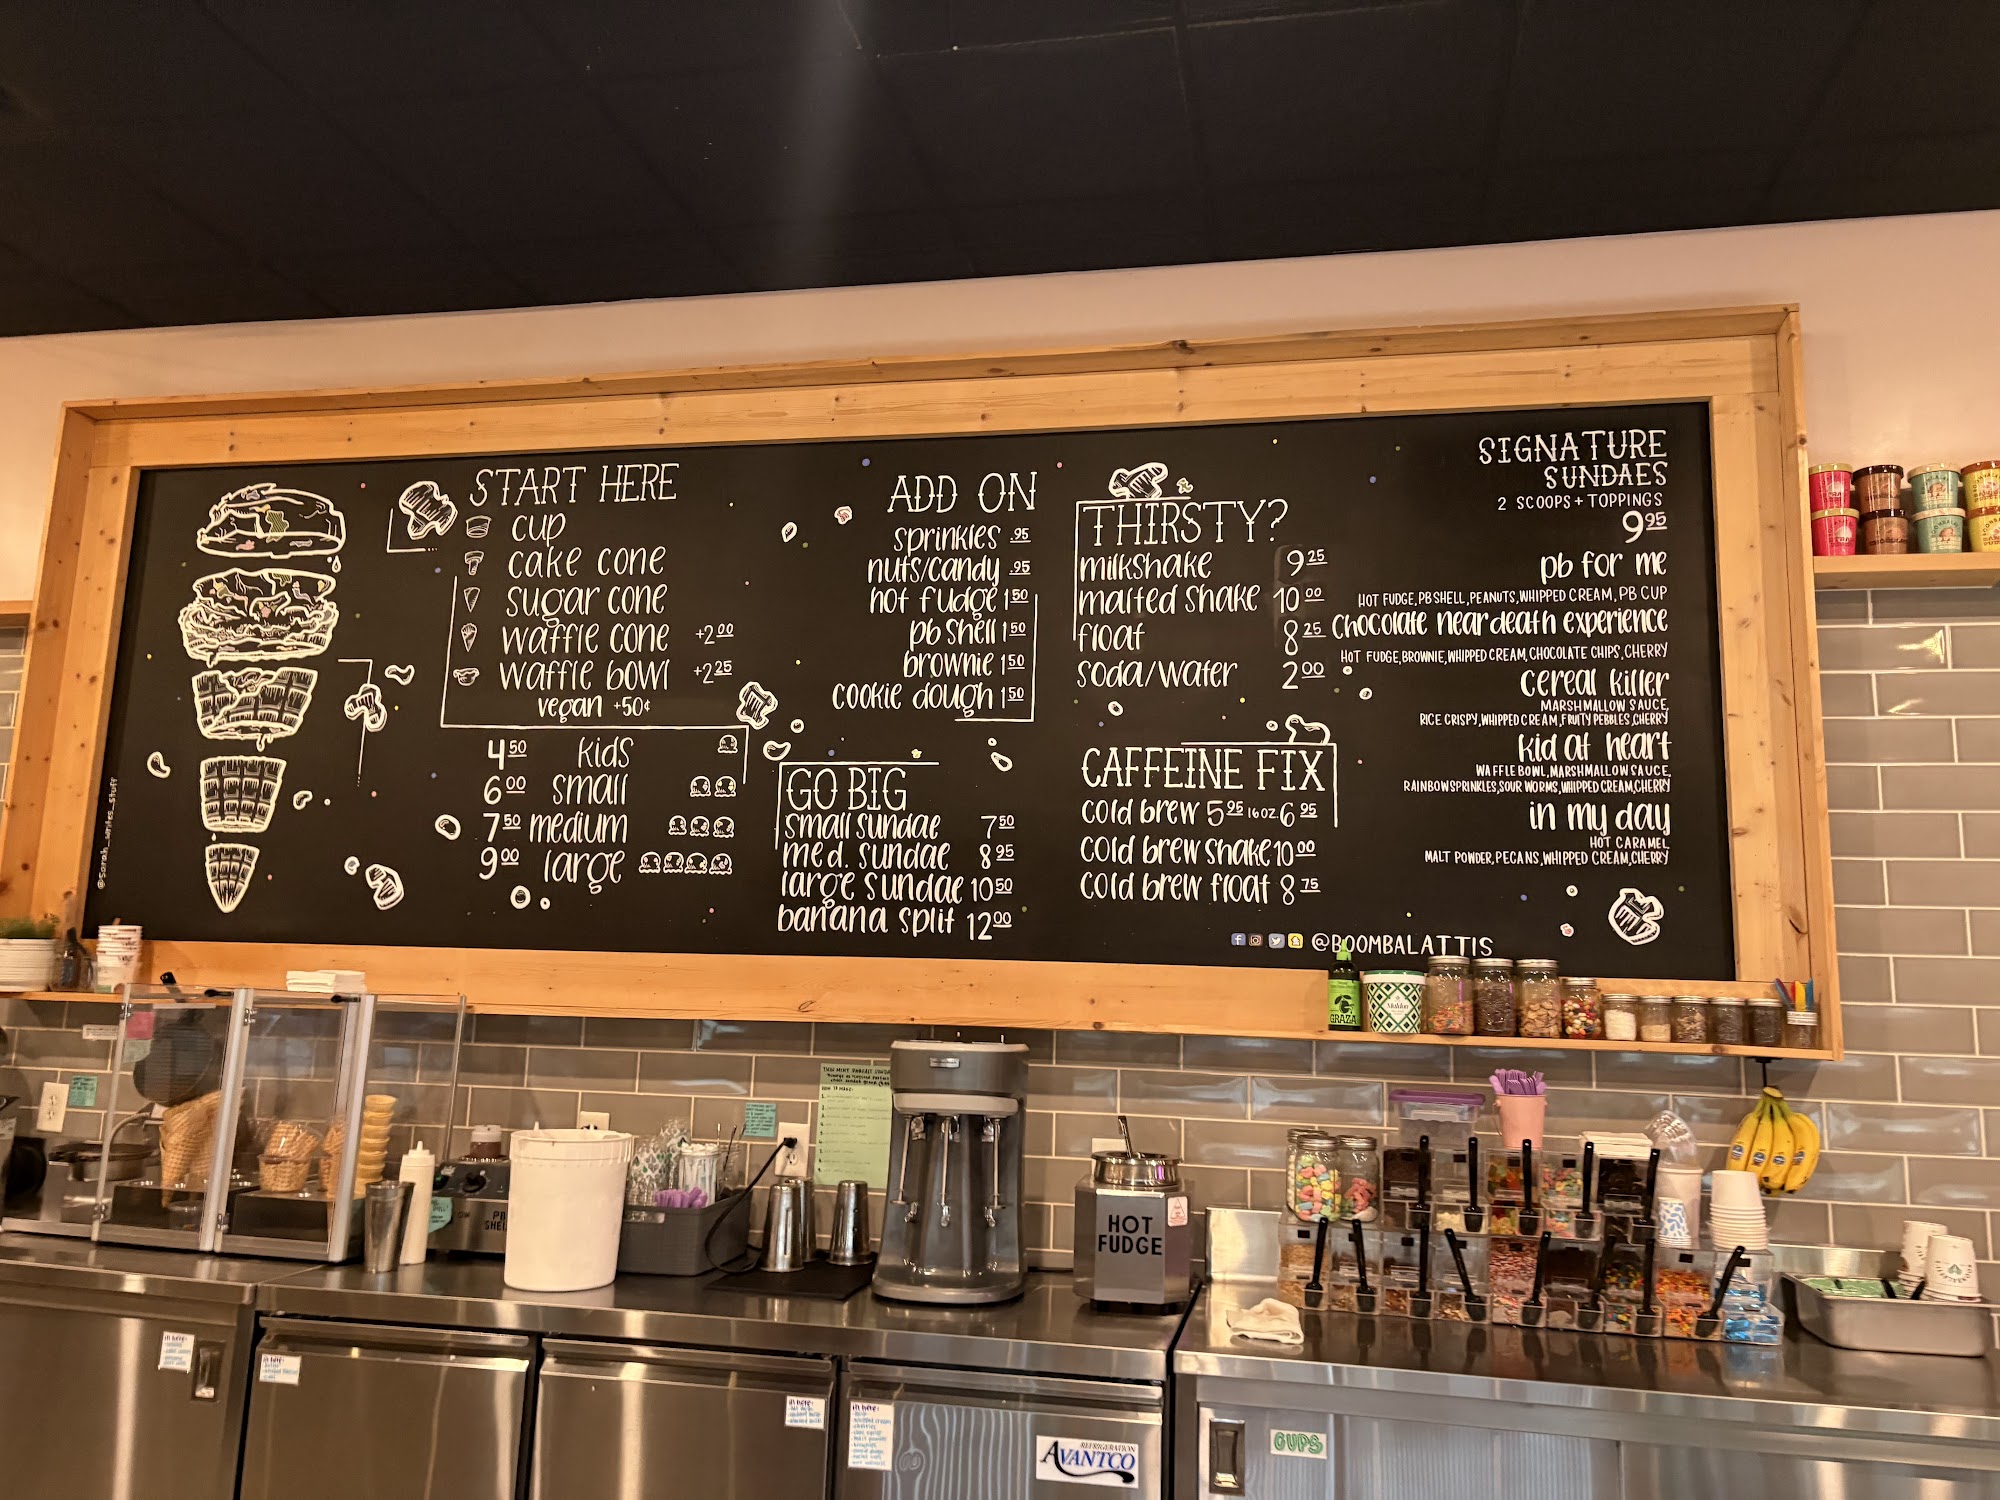 START HERE
cup
cake cone
sugar cone
waffle cone +2.00
waffle bowl +2.25
vegan +50¢
4.50 kids
6.00 small
7.50 medium
9.00 large
@sarah_writes_stuff
ADD ON
sprinkles .95
nuts/candy .95
hot fudge 1.50
pb shell 1.50
brownie 1.50
cookie dough 1.50
GO BIG
small sundae 7.50
med. sundae 8.95
large sundae 10.50
banana split 12.00
THIRSTY?
milkshake 9.25
malted shake 10.00
float 8.25
soda/water 2.00
CAFFEINE FIX
cold brew 5.95 16OZ 6.95
cold brew shake 10.00
cold brew float 8.75
SIGNATURE
SUNDAES
2 SCOOPS + TOPPINGS
9.95
pb for me
HOT FUDGE, PB SHELL, PEANUTS, WHIPPED CREAM, PB CUP
chocolate near death experience
HOT FUDGE, BROWNIE, WHIPPED CREAM, CHOCOLATE CHIPS, CHERRY
cereal killer
MARSHMALLOW SAUCE,
RICE CRISPY, WHIPPED CREAM, FRUITY PEBBLES, CHERRY
kid at heart
WAFFLE BOWL, MARSHMALLOW SAUCE,
RAINBOW SPRINKLES, SOUR WORMS, WHIPPED CREAM, CHERRY
in my day
HOT CARAMEL,
MALT POWDER, PECANS, WHIPPED CREAM, CHERRY
@BOOMBALATTIS
GRAZA
Maldon
HOW TO MAKE:
PB
SHELL
HOT
FUDGE
in here:
in here:
in here:
in here:
REFRIGERATION
AVANTCO
CUPS